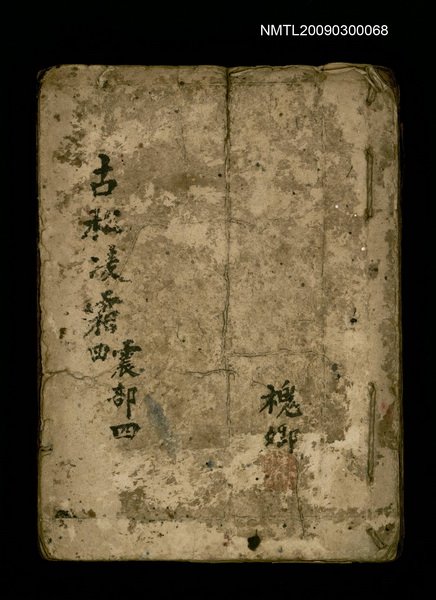 NMTL20090300068
古松淩霜四
震部四
槐卿